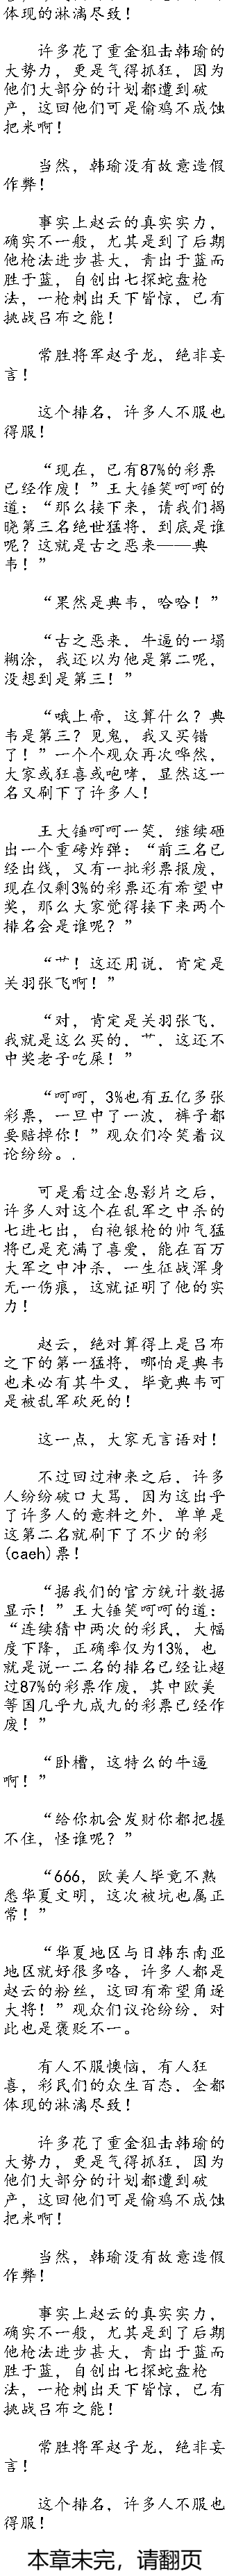 体现的淋漓尽致！
许多花了重金狙击韩瑜的
大势力，更是气得抓狂，因为
他们大部分的计划都遭到破
产，这回他们可是偷鸡不成蚀
把米啊！
当然，韩瑜没有故意造假
作弊！
事实上赵云的真实实力，
确实不一般，尤其是到了后期
他枪法进步甚大，青出于蓝而
胜于蓝，自创出七探蛇盘枪
法，一枪刺出天下皆惊，已有
挑战吕布之能！
常胜将军赵子龙，绝非妄
言！
这个排名，许多人不服也
得服！
“现在，已有87%的彩票
已经作废！”王大锤笑呵呵的
道：“那么接下来，请我们揭
晓第三名绝世猛将，到底是谁
呢？这就是古之恶来——典
韦！”
“果然是典韦，哈哈！”
“古之恶来，牛逼的一塌
糊涂，我还以为他是第二呢，
没想到是第三！”
“哦上帝，这算什么？典
韦是第三？见鬼，我又买错
了！”一个个观众再次哗然，
大家或狂喜或咆哮，显然这一
名又刷下了许多人！
王大锤呵呵一笑，继续砸
出一个重磅炸弹：“前三名已
经出线，又有一批彩票报废，
现在仅剩3%的彩票还有希望中
奖，那么大家觉得接下来两个
排名会是谁呢？”
“艹！这还用说，肯定是
关羽张飞啊！”
“对，肯定是关羽张飞，
我就是这么买的，艹，这还不
中奖老子吃屎！”
“呵呵，3%也有五亿多张
彩票，一旦中了一波，裤子都
要赔掉你！”观众们冷笑着议
论纷纷。.
可是看过全息影片之后，
许多人对这个在乱军之中杀的
七进七出，白袍银枪的帅气猛
将已是充满了喜爱，能在百万
大军之中冲杀，一生征战浑身
无一伤痕，这就证明了他的实
力！
赵云，绝对算得上是吕布
之下的第一猛将，哪怕是典韦
也未必有其牛叉，毕竟典韦可
是被乱军砍死的！
这一点，大家无言语对！
不过回过神来之后，许多
人纷纷破口大骂，因为这出乎
了许多人的意料之外，单单是
这第二名就刷下了不少的彩
(caeh)票！
“据我们的官方统计数据
显示！”王大锤笑呵呵的道：
“连续猜中两次的彩民，大幅
度下降，正确率仅为13%，也
就是说一二名的排名已经让超
过87%的彩票作废，其中欧美
等国几乎九成九的彩票已经作
废！”
“卧槽，这特么的牛逼
啊！”
“给你机会发财你都把握
不住，怪谁呢？”
“666，欧美人毕竟不熟
悉华夏文明，这次被坑也属正
常！”
“华夏地区与日韩东南亚
地区就好很多咯，许多人都是
赵云的粉丝，这回有希望角逐
大将！”观众们议论纷纷，对
此也是褒贬不一。
有人不服懊恼，有人狂
喜，彩民们的众生百态，全都
体现的淋漓尽致！
许多花了重金狙击韩瑜的
大势力，更是气得抓狂，因为
他们大部分的计划都遭到破
产，这回他们可是偷鸡不成蚀
把米啊！
当然，韩瑜没有故意造假
作弊！
事实上赵云的真实实力，
确实不一般，尤其是到了后期
他枪法进步甚大，青出于蓝而
胜于蓝，自创出七探蛇盘枪
法，一枪刺出天下皆惊，已有
挑战吕布之能！
常胜将军赵子龙，绝非妄
言！
这个排名，许多人不服也
得服！
本章未完，请翻页